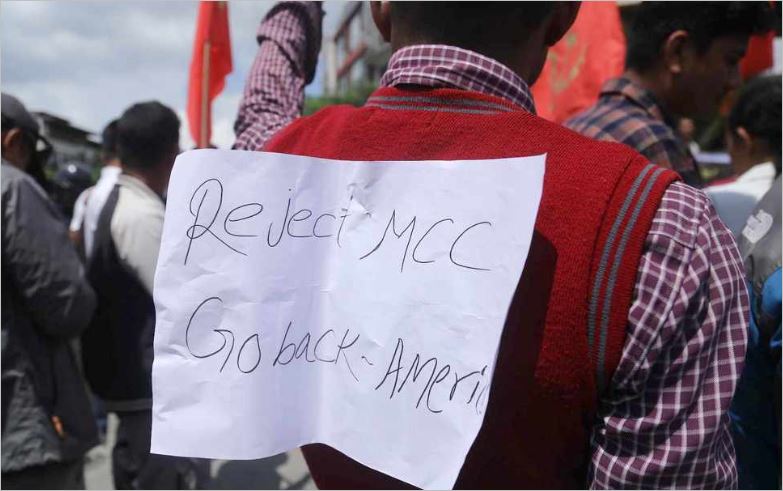 Reject MCC
Go back - Ameri